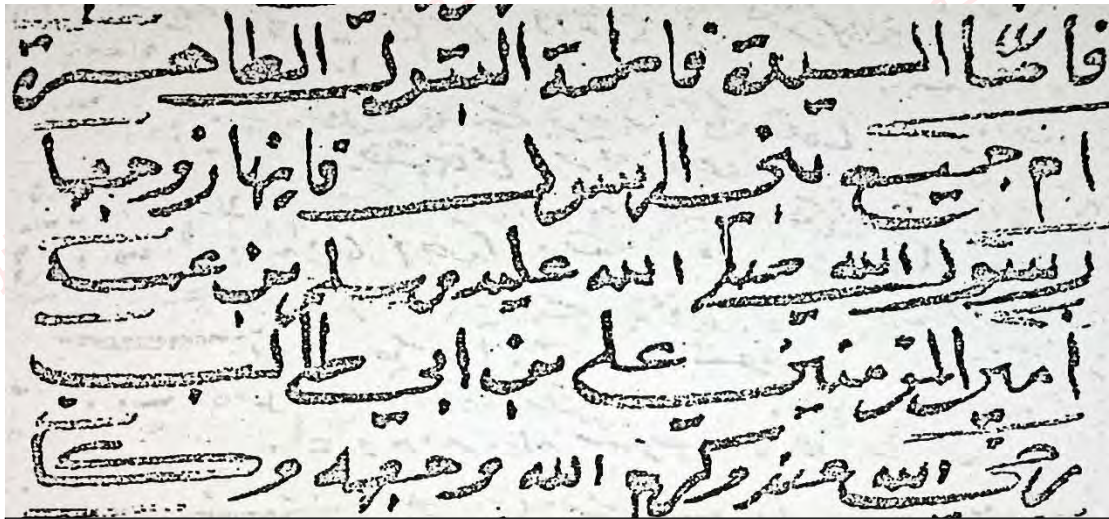 فاما السيدة فاطمة البتول الطاهرة
ام جميع بنى الرسول فانها زوجها
رسول الله صلى الله عليه وسلم من عمه
امير المؤمنين على بن ابى طالب
رضى الله عنه وكرم الله وجهه وكا